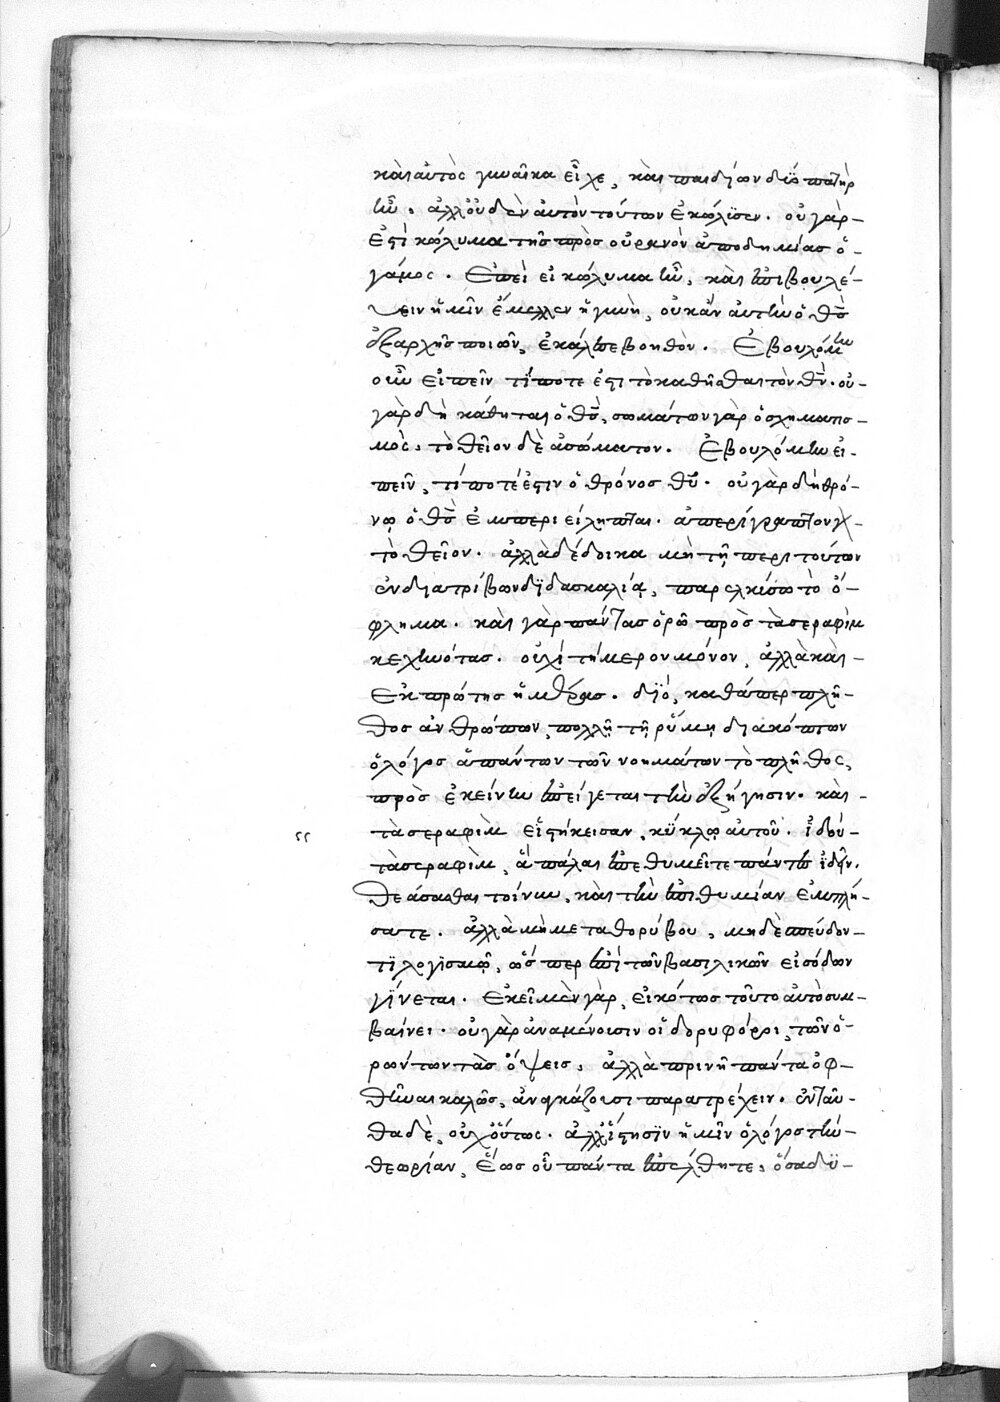 καὶ αὐτὸς γυναῖκα εἶχε, καὶ παιδίων δύο πατὴρ
ἦν. ἀλλ' οὐδὲν αὐτὸν τούτων ἐκώλϋσεν. οὐ γὰρ-
ἐστὶ κώλυμα τῆς πρὸς οὐρανὸν ἀποδημίας ὁ-
γάμος. Ἐπεὶ εἰ κώλυμα ἦν, καὶ ἐπιβουλέ-
υειν ἡμῖν ἔμελλεν ἡ γυνὴ, οὐκ ἂν αὐτὴν ὁ θς
ἐξαρχῆς ποιῶν, ἐκάλεσε βοηθόν. Ἐβουλόμην
οὖν εἰπεῖν τΐποτε ἐστι τὸ καθῆσθαι τὸν θν. οὐ-
γὰρ δὴ κάθηται ὁ θς, σωμάτων γὰρ ὁ σχηματισ-
μὸς. τὸ θεῖον δὲ ἀσώματον. Ἐβουλόμην εἰ-
πεῖν, τί ποτέ ἐστιν ὁ θρόνος θυ. οὐ γὰρ δὴ θρό-
νῳ ὁ θς ἐμπεριείληπται. ἀπερίγραπτον γὰρ-
τὸ θεῖον. ἀλλὰ δέδοικα μὴ τῇ περι τούτων
ἐνδιατρίβων δϊδασκαλίᾳ, παρελκύσω τὸ ὄ-
φλημα. καὶ γὰρ πάντας ὁρῶ πρὸς τὰ σεραφὶμ
κεχηνότας. οὐχὶ τήμερον μόνον, ἀλλὰ καὶ-
ἐκ πρώτης ἡμέρας. διό, καθάπερ πλῆ-
θος ἀνθρώπων, πολλῇ τῇ ῥύμῃ διακόπτων
ὁ λόγος ἁπάντων τῶν νοημάτων τὸ πλῆθος,
πρὸς ἐκείνην ἐπείγεται τὴν ἐξήγησιν. καὶ-
τὰ σεραφὶμ εἱστήκεισαν, κύκλῳ αὐτοῦ. ἰδού-
τὰ σεραφὶμ, ἃ πάλαι ἐπεθυμεῖτε πάντες ἰδεῖν.
θεάσασθαι τοίνυν, καὶ τὴν ἐπιθυμίαν ἐμπλή-
σατε. ἀλλὰ μὴ μετα θορύβου, μηδὲ σπεύδον-
τϊ λογϊσμῷ, ὥσπερ ἐπὶ τῶν βασιλικῶν εἰσόδων
γΐνεται. ἐκεῖ μὲν γὰρ, εἰκότως τοῦτο αὐτὸ συμ-
βαίνει. οὐ γὰρ ἀναμένουσιν οἱ δορυφόροι, τῶν ὁ-
ρώντων τὰς ὄψεις. ἀλλὰ πρινὴ πάντα ὀφ-
θῆναι καλῶς, ἀναγκάζουσι παρατρέχειν. ἐνταῦ-
θα δὲ, οὐχ' οὕτως. ἀλλ' ἵστησϊν ἡμῖν ὁ λόγος τὴν-
θεωρίαν, ἕως οὗ πάντα ἐπέλθητε. ὅσα δϋ-